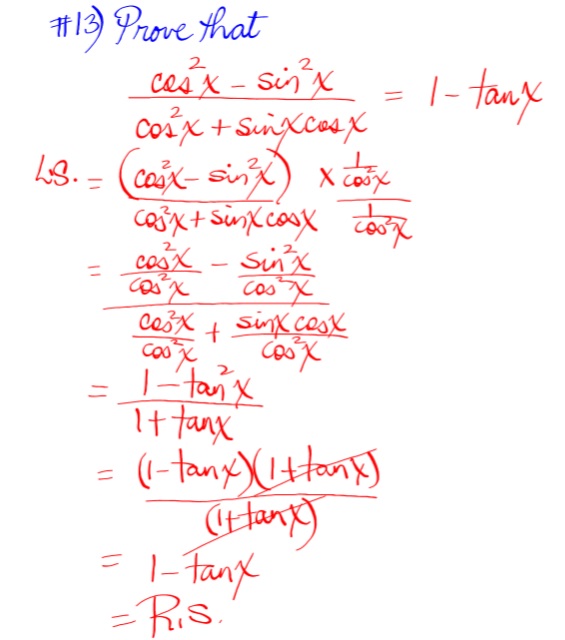 #13) Prove that
cos²x - sin²x / cos²x + sinxcosx = 1 - tanx
L.S. = (cos²x - sin²x) / cos²x + sinxcosx × 1/cos²x / 1/cos²x
= cos²x/cos²x - sin²x/cos²x / cos²x/cos²x + sinxcosx/cos²x
= 1 - tan²x / 1 + tanx
= (1 - tanx)(1 + tanx) / (1 + tanx)
= 1 - tanx
= R.S.